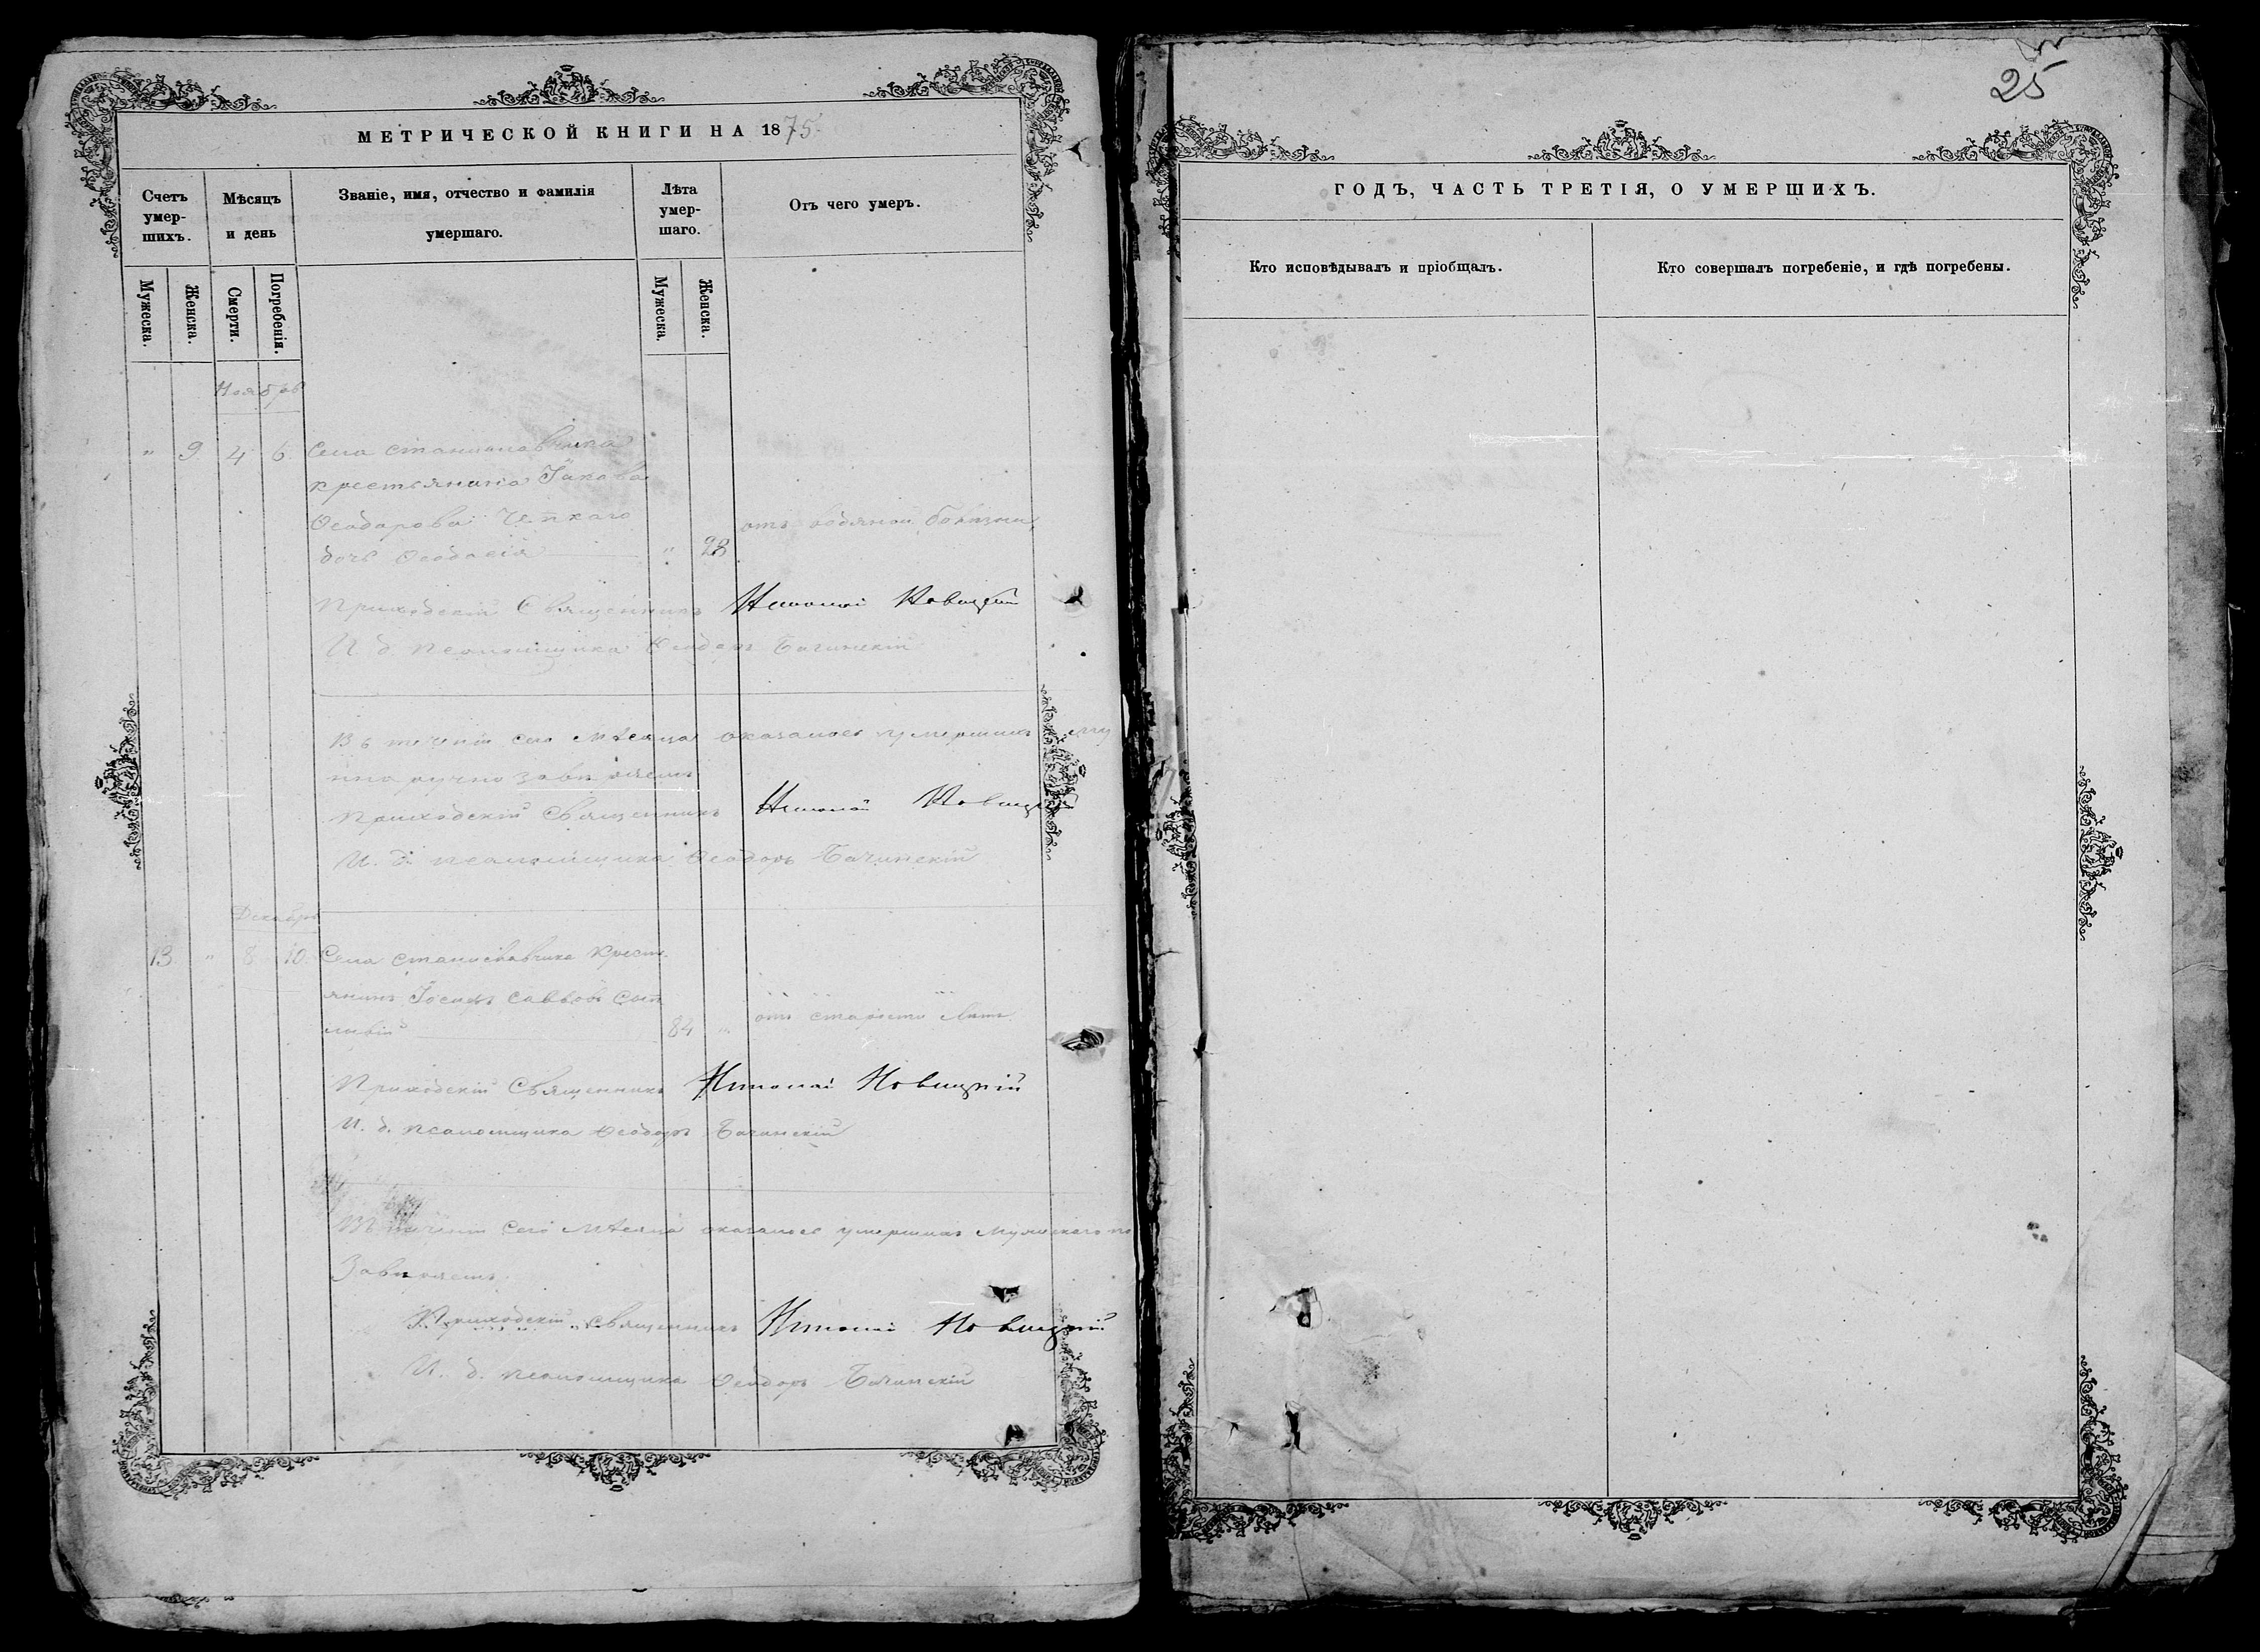 МЕТРИЧЕСКОЙ КНИГИ НА 1875
Счетъ умер-шихъ.
Мѣсяцъ и день
Званіе, имя, отчество и фамилія умершаго.
Лѣта умер-шаго.
Отъ чего умеръ.
Мужеска.
Женска.
Смерти.
Погребенія.
Мужеска.
Женска.
Ноябрь
" 9. 4 6. Села
крестьянина Іакова
Ѳеодорова
дочь Ѳеодосія " 28 отъ водяной болѣзни
Приходскій Священникъ Николай Новицкій
И. д. псаломщика Ѳеодоръ Бачинскій
Въ теченіи сего мѣсяца оказалось умершихъ
завѣряемъ
Приходскій Священникъ Николай Новицкій
И. д. псаломщика Ѳеодоръ Бачинскій
Декабрь
13 " 8 10. Села Станиславчика Крестъ
янинъ Іосифъ Саввовъ
84 " отъ старости лѣтъ
Приходскій Священникъ Николай Новицкій
И. д. псаломщика Ѳеодоръ Бачинскій
Въ теченіи сего мѣсяца оказалось умершихъ мужескаго по
Завѣряемъ
Приходскій Священникъ Николай Новицкій
И. д. псаломщика Ѳеодоръ Бачинскій
25
ГОДЪ, ЧАСТЬ ТРЕТІЯ, О УМЕРШИХЪ.
Кто исповѣдывалъ и пріобщалъ.
Кто совершалъ погребеніе, и гдѣ погребены.